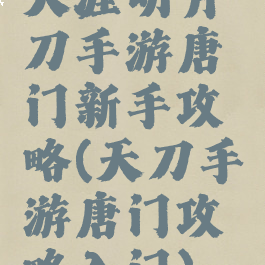 天涯明月
刀手游唐
门新手攻
略(天刀手
游唐门攻
略入门)